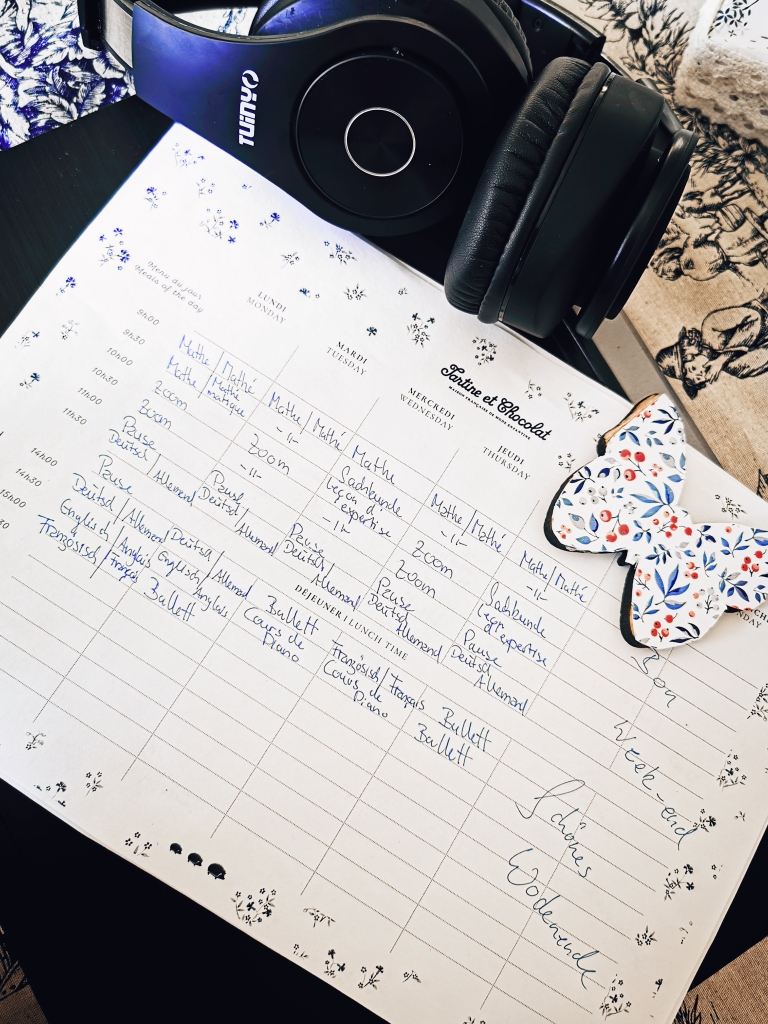 TUINYO
Menu du jour
Meals of the day
LUNDI
MONDAY
MARDI
TUESDAY
MERCREDI
WEDNESDAY
JEUDI
THURSDAY
Tartine et Chocolat
MAISON FRANÇAISE DE MODE ENFANTINE
9h00
Mathe / Mathé Mathe / Mathé Mathe Mathe / Mathé Mathe / Mathé
9h30
Mathe / Mathématique -11- Sachkunde -11- -11-
10h00
Zoom Zoom Leçon d'expertise Zoom Sachkunde
10h30
Zoom -11- -11- Zoom Leçon d'expertise
11h00
Pause Pause Pause Pause Pause
11h30
Deutsch / Allemand Deutsch / Allemand Deutsch / Allemand Deutsch / Allemand Deutsch / Allemand
DÉJEUNER | LUNCH TIME
14h00
Pause
14h30
Deutsch / Allemand Deutsch / Allemand Ballett Französisch / Français Ballett
15h00
Englisch / Anglais Englisch / Anglais Cours de Piano Cours de Piano Ballett
30
Französisch / Français Ballett
Bon
Week-end
Schönes
Wochenende